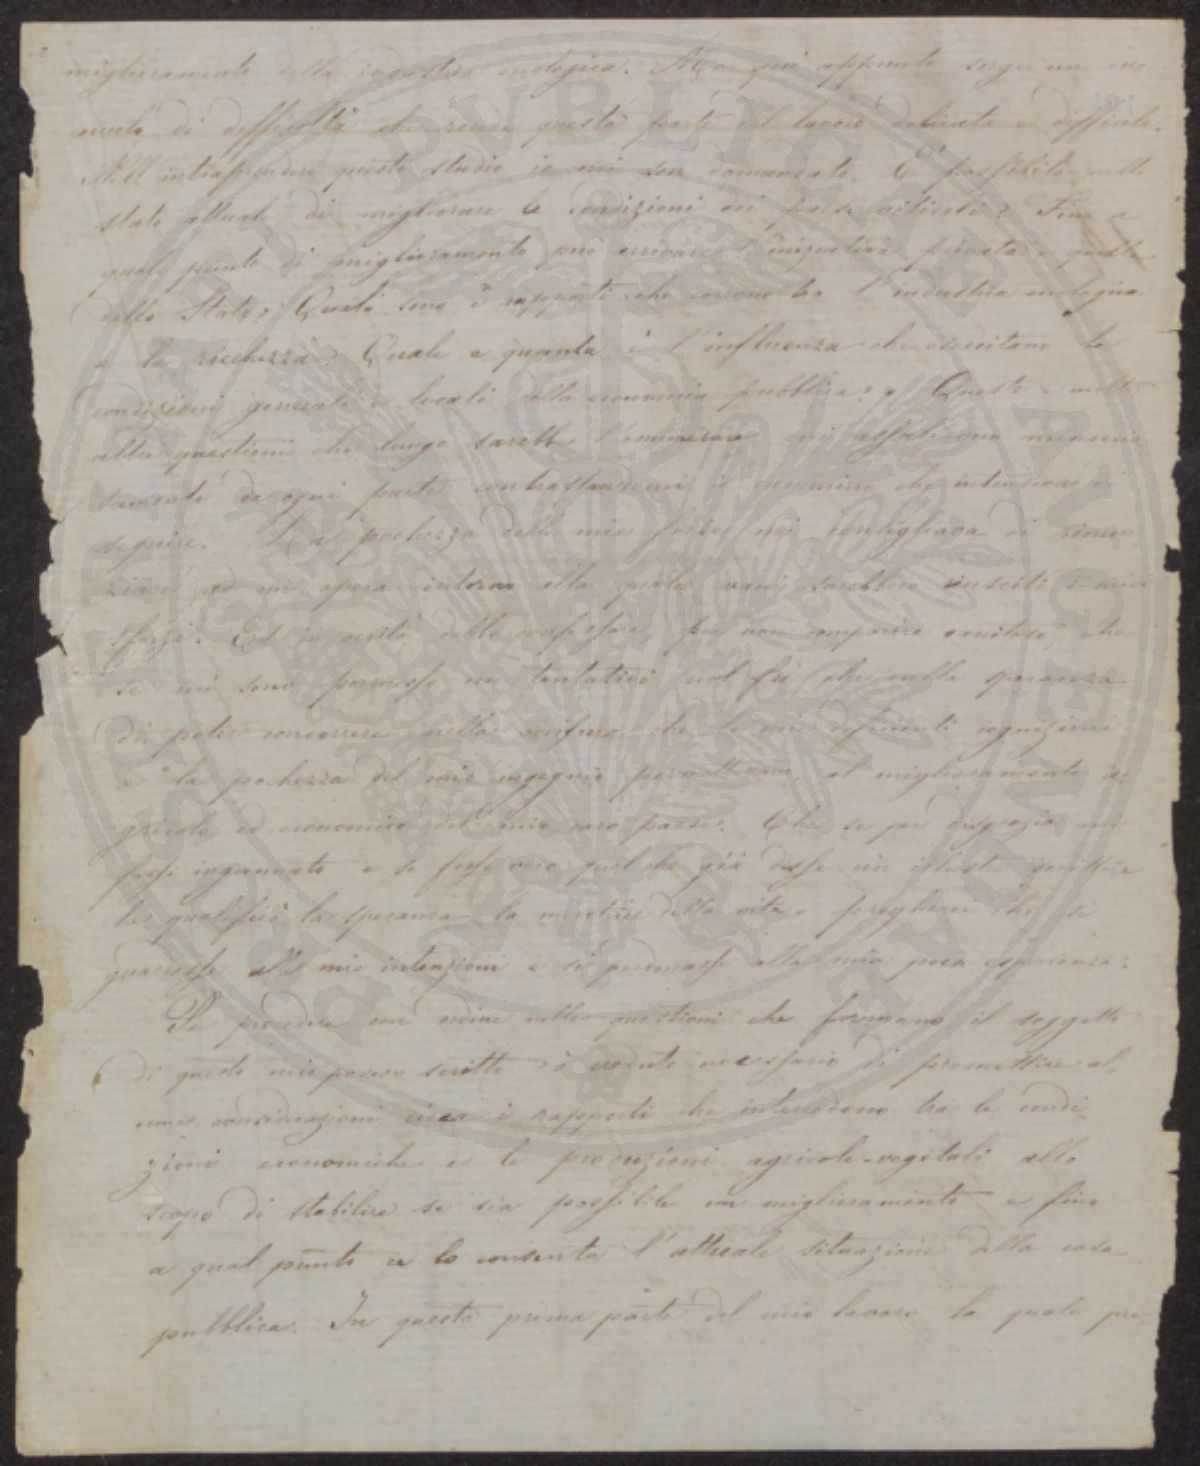 miglioramento della industria enologica. Ma qui appunto sorge un cu
mulo di difficoltà che rende questa parte del lavoro delicata e difficile.
Nell'intraprendere questo studio io mi son domandato. E' possibile nello
stato attuale di migliorare le condizioni dei paesi viticoli? Fino a
quale punto di miglioramento può arrivare l'iniziativa privata e quella
dello Stato? Quali sono i rapporti che corrono tra l'industria enologica
e la ricchezza? Quale e quanta è l'influenza che esercitano le
condizioni generali e locali della economia pubblica? Queste e molte
altre questioni che lungo sarebbe l'enumerare mi assalivano
da ogni parte contrastandomi il cammino che intendeva di
seguire. La pochezza delle mie forze mi consigliava di rinun
ziare ad un opera intorno alla quale vani sarebbero riusciti i miei
sforzi. Ed in verità debbo confessare, per non comparire che
se mi sono permesso un tentativo nol fu che nella speranza
di poter concorrere nella misura che le mie deficienti cognizioni
e la pochezza del mio ingegno permettevano, al miglioramento a
gricolo ed economico del mio caro paese. Che se per disgrazia mi
fossi ingannato e se fosse vero quel che già disse un illustre scrittore
che qualificò la speranza la della vita, pregherei che si
guardasse alle mie intenzioni e si perdonasse alla mia poca esperienza.
Per procedere con ordine nelle questioni che formano il soggetto
di questo mio povero scritto ò creduto necessario di premettere al
cune considerazioni circa i rapporti che intercedono tra le condi
zioni economiche e le produzioni agricole-vegetali allo
scopo di stabilire se sia possibile un miglioramento e fino
a qual punto ce lo consenta l'attuale situazione della cosa
pubblica. In questa prima parte del mio lavoro la quale pre